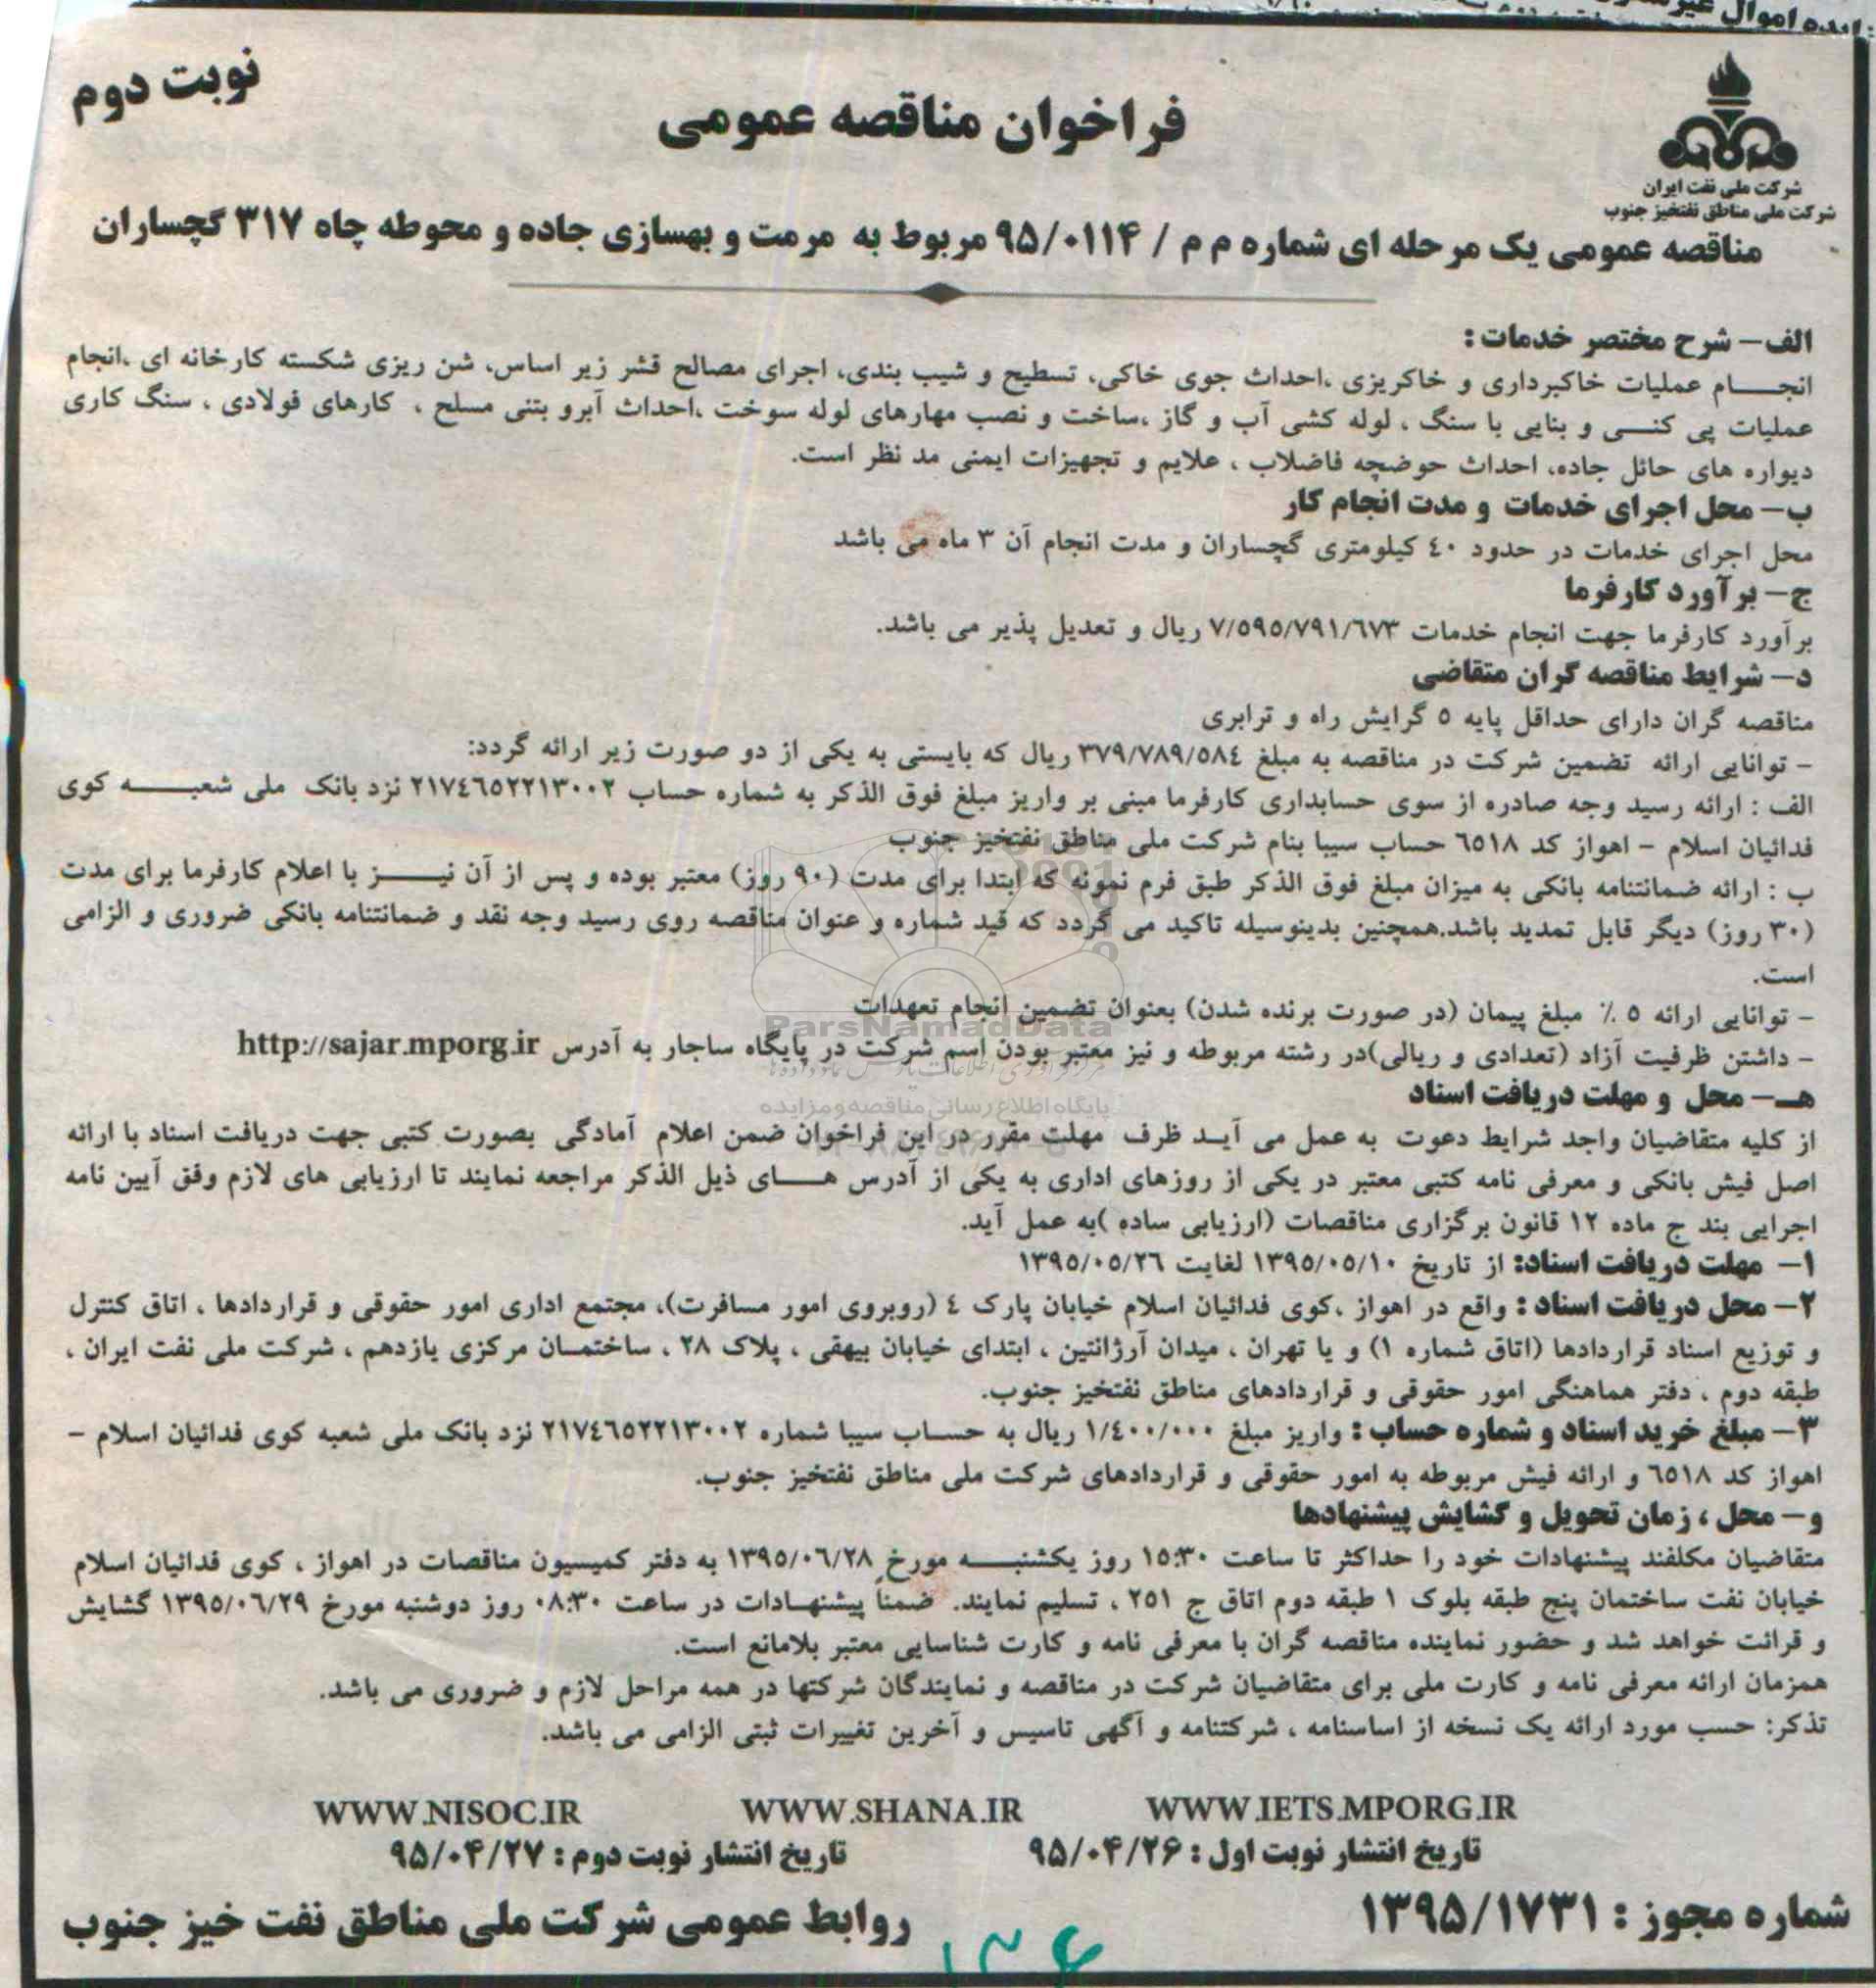 نوبت دوم
فراخوان مناقصه عمومی
شرکت ملی نفت ایران
شرکت ملی مناطق نفتخیز جنوب
مناقصه عمومی یک مرحله ای شماره م م / ۹۵/۰۱۱۴ مربوط به مرمت و بهسازی جاده و محوطه چاه ۳۱۷ گچساران
الف- شرح مختصر خدمات :
انجام عملیات خاکبرداری و خاکریزی ،احداث جوی خاکی، تسطیح و شیب بندی، اجرای مصالح قشر زیر اساس، شن ریزی شکسته کارخانه ای ،انجام
عملیات پی کنی و بنایی با سنگ ، لوله کشی آب و گاز ،ساخت و نصب مهارهای لوله سوخت ،احداث آبرو بتنی مسلح ، کارهای فولادی ، سنگ کاری
دیواره های حائل جاده، احداث حوضچه فاضلاب ، علایم و تجهیزات ایمنی مد نظر است.
ب- محل اجرای خدمات و مدت انجام کار
محل اجرای خدمات در حدود ۴۰ کیلومتری گچساران و مدت انجام آن ۳ ماه می باشد
ج- برآورد کارفرما
برآورد کارفرما جهت انجام خدمات ۷/۵۹۵/۷۹۱/۶۷۳ ریال و تعدیل پذیر می باشد.
د- شرایط مناقصه گران متقاضی
مناقصه گران دارای حداقل پایه ۵ گرایش راه و ترابری
- توانایی ارائه تضمین شرکت در مناقصه به مبلغ ۳۷۹/۷۸۹/۵۸۴ ریال که بایستی به یکی از دو صورت زیر ارائه گردد:
الف : ارائه رسید وجه صادره از سوی حسابداری کارفرما مبنی بر واریز مبلغ فوق الذکر به شماره حساب ۲۱۷۴۶۵۲۲۱۳۰۰۲ نزد بانک ملی شعبه کوی
فدائیان اسلام - اهواز کد ۶۵۱۸ حساب سیبا بنام شرکت ملی مناطق نفتخیز جنوب
ب : ارائه ضمانتنامه بانکی به میزان مبلغ فوق الذکر طبق فرم نمونه که ابتدا برای مدت (۹۰ روز) معتبر بوده و پس از آن نیز با اعلام کارفرما برای مدت
(۳۰ روز) دیگر قابل تمدید باشد.همچنین بدینوسیله تاکید می گردد که قید شماره و عنوان مناقصه روی رسید وجه نقد و ضمانتنامه بانکی ضروری و الزامی
است.
- توانایی ارائه ۵ ٪ مبلغ پیمان (در صورت برنده شدن) بعنوان تضمین انجام تعهدات
ParsNamadData
- داشتن ظرفیت آزاد (تعدادی و ریالی)در رشته مربوطه و نیز معتبر بودن اسم شرکت در پایگاه ساجار به آدرس http://sajar.mporg.ir
هـ- محل و مهلت دریافت اسناد
پایگاه اطلاع رسانی مناقصه و مزایده
از کلیه متقاضیان واجد شرایط دعوت به عمل می آید ظرف مهلت مقرر در این فراخوان ضمن اعلام آمادگی بصورت کتبی جهت دریافت اسناد با ارائه
اصل فیش بانکی و معرفی نامه کتبی معتبر در یکی از روزهای اداری به یکی از آدرس های ذیل الذکر مراجعه نمایند تا ارزیابی های لازم وفق آیین نامه
اجرایی بند ج ماده ۱۲ قانون برگزاری مناقصات (ارزیابی ساده )به عمل آید.
۱- مهلت دریافت اسناد: از تاریخ ۱۳۹۵/۰۵/۱۰ لغایت ۱۳۹۵/۰۵/۲۶
۲- محل دریافت اسناد : واقع در اهواز ،کوی فدائیان اسلام خیابان پارک ۴ (روبروی امور مسافرت)، مجتمع اداری امور حقوقی و قراردادها ، اتاق کنترل
و توزیع اسناد قراردادها (اتاق شماره ۱) و یا تهران ، میدان آرژانتین ، ابتدای خیابان بیهقی ، پلاک ۲۸ ، ساختمان مرکزی یازدهم ، شرکت ملی نفت ایران ،
طبقه دوم ، دفتر هماهنگی امور حقوقی و قراردادهای مناطق نفتخیز جنوب.
۳- مبلغ خرید اسناد و شماره حساب : واریز مبلغ ۱/۴۰۰/۰۰۰ ریال به حساب سیبا شماره ۲۱۷۴۶۵۲۲۱۳۰۰۲ نزد بانک ملی شعبه کوی فدائیان اسلام -
اهواز کد ۶۵۱۸ و ارائه فیش مربوطه به امور حقوقی و قراردادهای شرکت ملی مناطق نفتخیز جنوب.
و- محل ، زمان تحویل و گشایش پیشنهادها
متقاضیان مکلفند پیشنهادات خود را حداکثر تا ساعت ۱۵:۳۰ روز یکشنبه مورخ ۱۳۹۵/۰۶/۲۸ به دفتر کمیسیون مناقصات در اهواز ، کوی فدائیان اسلام
خیابان نفت ساختمان پنج طبقه بلوک ۱ طبقه دوم اتاق ج ۲۵۱ ، تسلیم نمایند. ضمناً پیشنهادات در ساعت ۰۸:۳۰ روز دوشنبه مورخ ۱۳۹۵/۰۶/۲۹ گشایش
و قرائت خواهد شد و حضور نماینده مناقصه گران با معرفی نامه و کارت شناسایی معتبر بلامانع است.
همزمان ارائه معرفی نامه و کارت ملی برای متقاضیان شرکت در مناقصه و نمایندگان شرکتها در همه مراحل لازم و ضروری می باشد.
تذکر: حسب مورد ارائه یک نسخه از اساسنامه ، شرکتنامه و آگهی تاسیس و آخرین تغییرات ثبتی الزامی می باشد.
WWW.IETS.MPORG.IR WWW.SHANA.IR WWW.NISOC.IR
تاریخ انتشار نوبت اول : ۹۵/۰۴/۲۶ تاریخ انتشار نوبت دوم : ۹۵/۰۴/۲۷
شماره مجوز : ۱۳۹۵/۱۷۳۱ روابط عمومی شرکت ملی مناطق نفت خیز جنوب